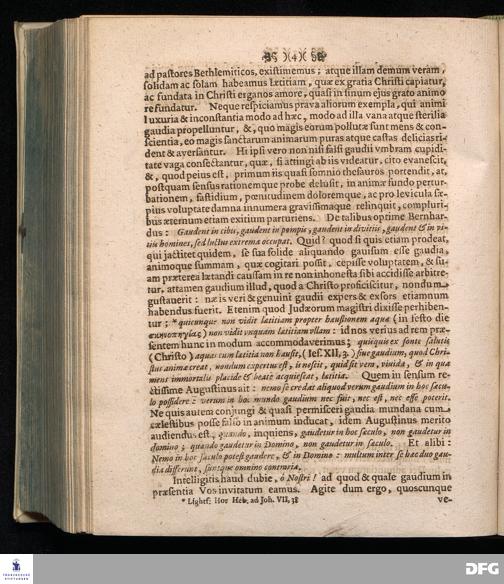 )(4)(
ad pastores Bethlemiticos, existimemus; atque illam demum veram,
solidam ac solam habeamus Lætitiam, quæ ex gratia Christi capiatur,
ac fundata in Christi erga nos amore, quasi in sinum ejus grato animo
refundatur. Neque respiciamus prava aliorum exempla, qui animi
luxuria & inconstantia modo ad hæc, modo ad illa vana atque sterilia
gaudia propelluntur, &, quo magis eorum pollutæ sunt mens & con-
scientia, eo magis sanctarum animarum puras atque castas delicias ri-
dent & aversantur. Hi ipsi vero non nisi falsi gaudii vmbram cupidi-
tate vaga consectantur, quæ, si attingi ab iis videatur, cito evanescit,
&, quod pejus est, primum iis quasi somnio thesauros portendit, at,
postquam sensus rationemque probe delusit, in animæ fundo pertur-
bationem, fastidium, pœnitudinem doloremque, ac pro levicula sæ-
pius voluptare damna innumera gravissimaque relinquit, compluri-
bus æternum etiam exitium parturiens. De talibus optime Bernhar-
dus: Gaudent in cibis, gaudent in pompis, gaudent in divitiis, gaudent & in vi-
tiis homines, sed luctus extrema occupat. Quid? quod si quis etiam prodeat,
qui jactitet quidem, se sua solide aliquando gavisum esse gaudia,
animoque summam, quæ cogitari possit, cepisse voluptatem, & su-
am præterea lætandi caussam in re non inhonesta sibi accidisse arbitre-
tur, attamen gaudium illud, quod a Christo proficiscitur, nondum
gustaverit: næ is veri & genuini gaudii expers & exsors etiamnum
habendus fuerit. Etenim quod Judæorum magistri dixisse perhiben-
tur; * quicunque non vidit lætitiam propter haustionem aquæ (in festo die
σκηνοπηγίας) non vidit unquam lætitiam ullam: id nos verius ad rem præ-
sentem hunc in modum accommodaverimus; quisquis ex fonte salutis
(Christo) aquas cum lætitia non hausit, (Jes. XII, 3.) sive gaudium, quod Chri-
stus animæ creat, nondum expertus est, is nescit, quid sit vera, vivida, & in qua
mens immortalis placide & beate acquiescat, lætitia. Quem in sensum re-
ctissime Augustinus ait: nemo se credat aliquod verum gaudium in hoc sæcu-
lo possidere: verum in hoc mundo gaudium nec fuit, nec est, nec esse poterit.
Ne quis autem conjungi & quasi permisceri gaudia mundana cum
cælestibus posse falso in animum inducat, idem Augustinus merito
audiendus est, quando, inquiens, gaudetur in hoc sæculo, non gaudetur in
domino; quando gaudetur in Domino, non gaudetur in sæculo. Et alibi:
Nemo in hoc sæculo potest gaudere, & in Domino: multum inter se hæc duo gau-
dia differunt, suntque omnino contraria.
Intelligitis haud dubie, ô Nostri! ad quod & quale gaudium in
præsentia Vos invitatum eamus. Agite dum ergo, quoscunque
* Lightf. Hor. Heb. ad Joh. VII, 38
ve-
DFG